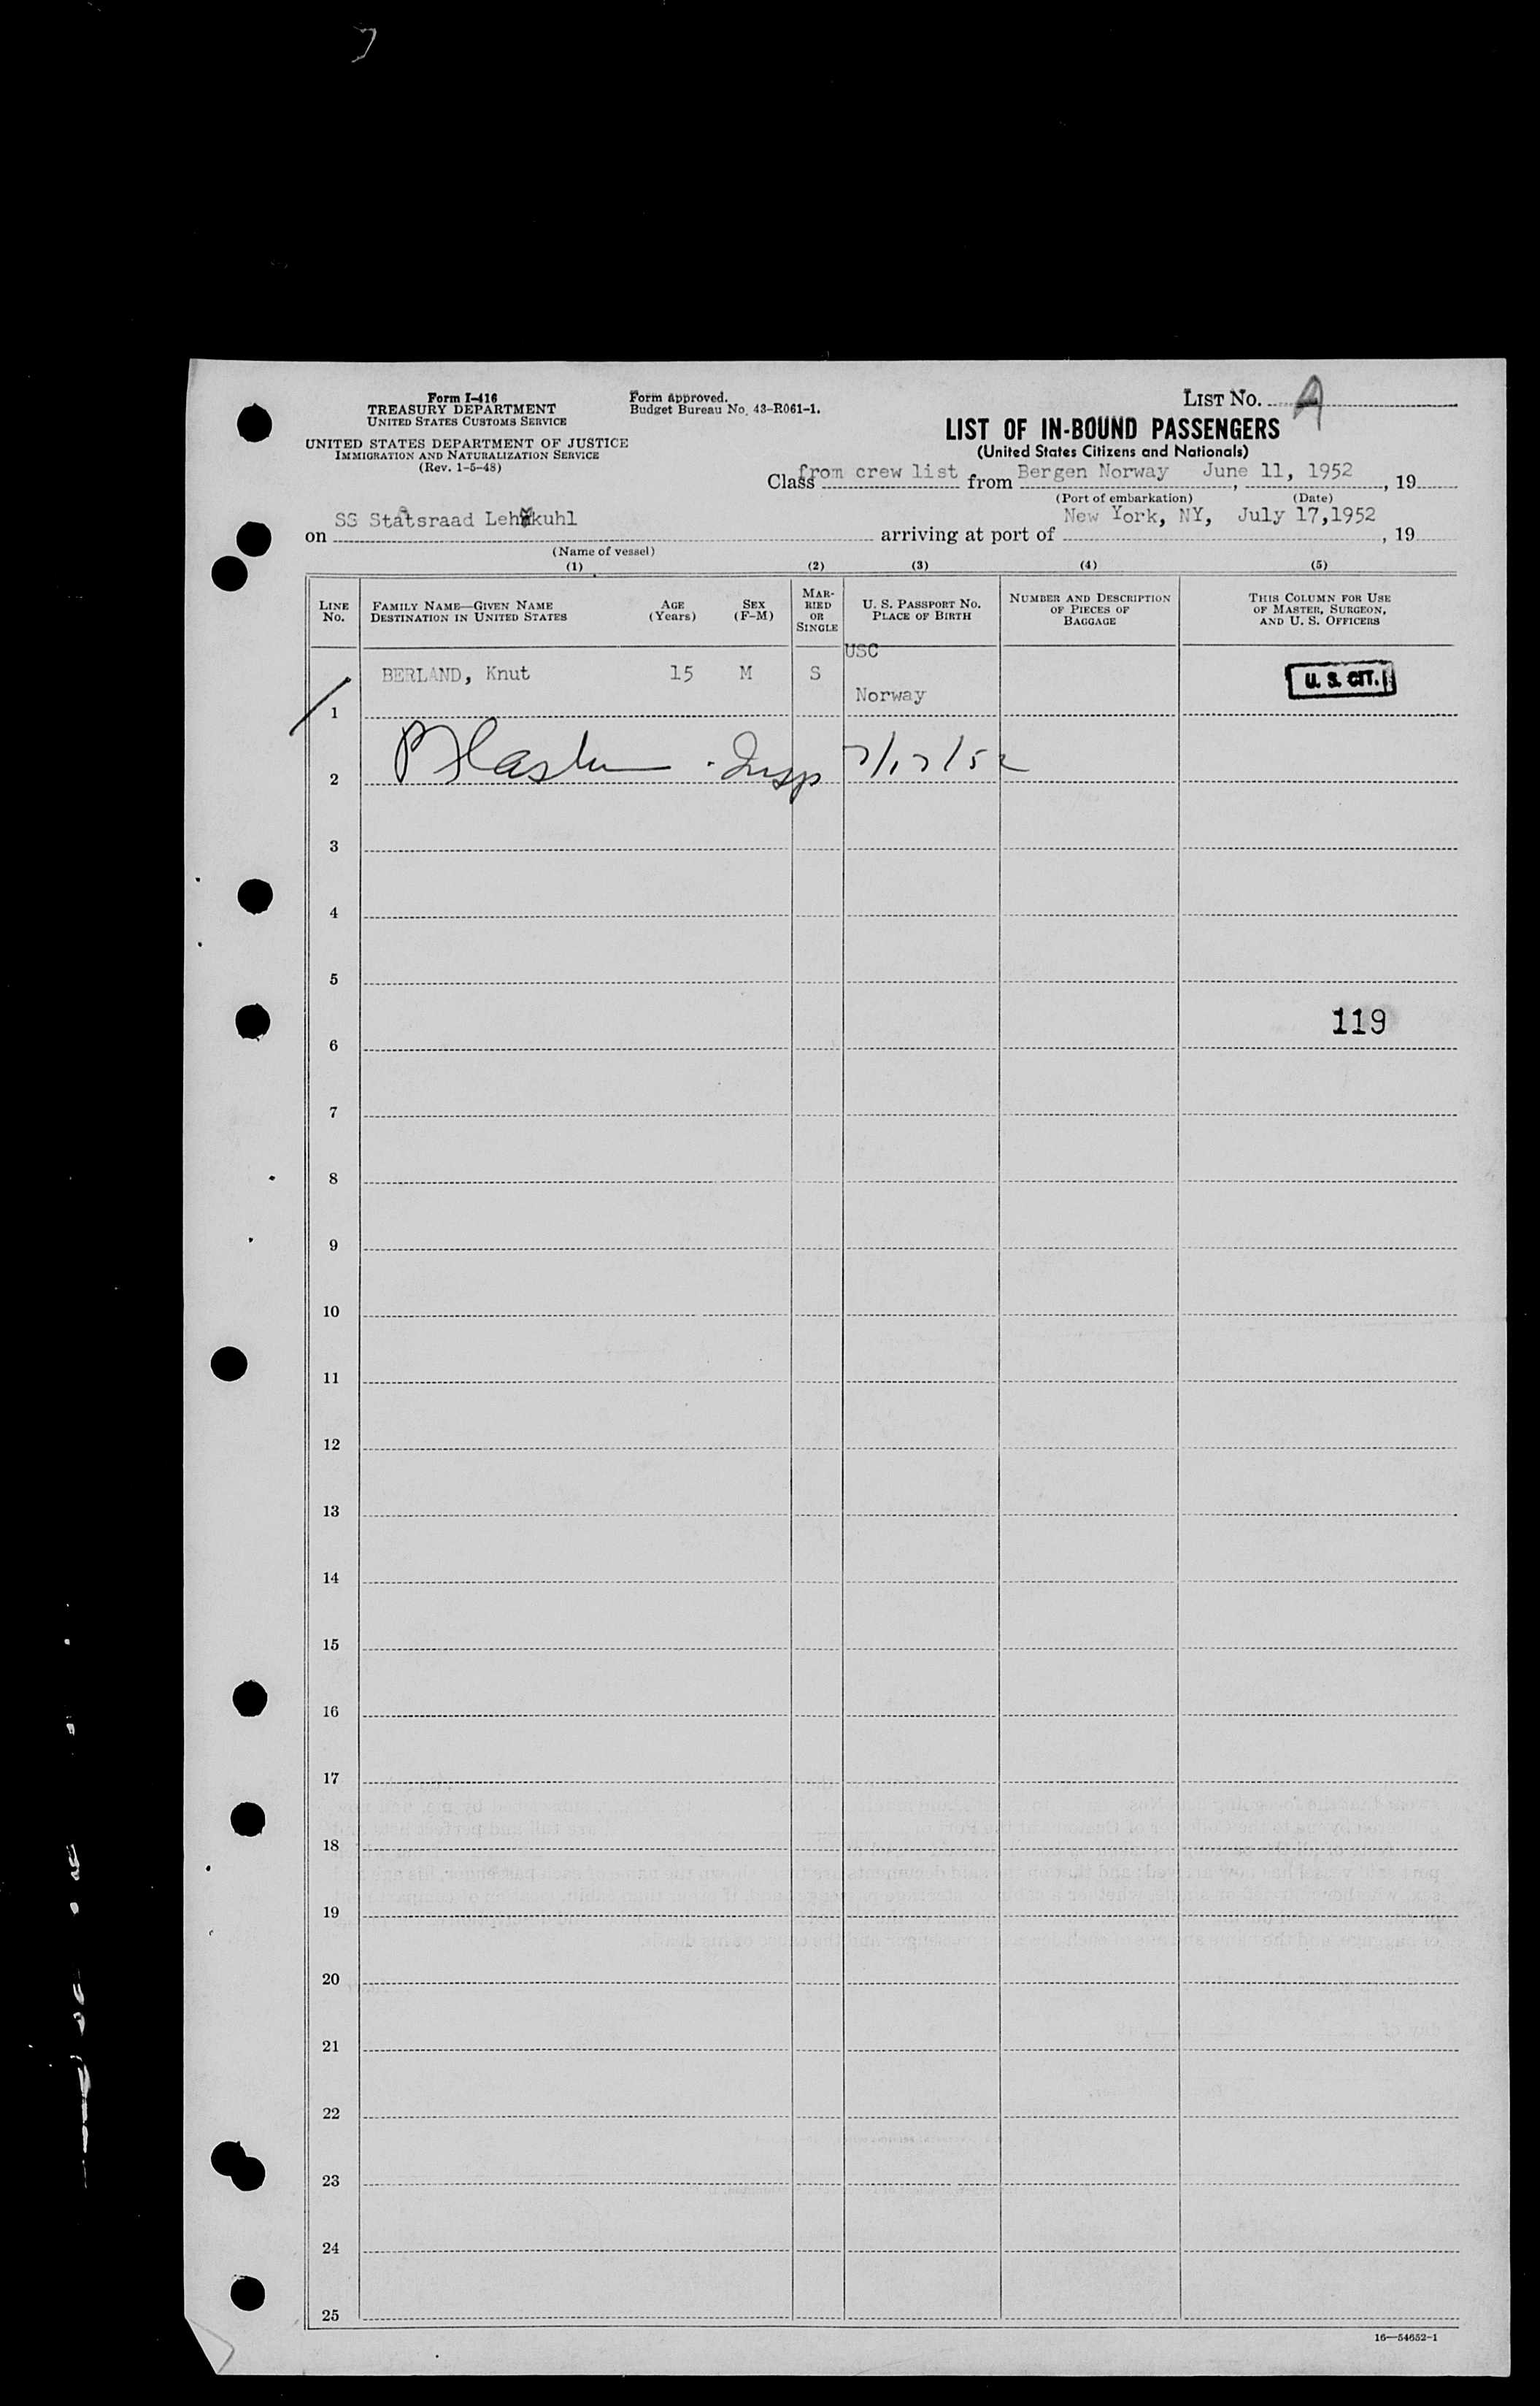 Form I-416
TREASURY DEPARTMENT
UNITED STATES CUSTOMS SERVICE
UNITED STATES DEPARTMENT OF JUSTICE
IMMIGRATION AND NATURALIZATION SERVICE
(Rev. 1-5-48)
Form approved.
Budget Bureau No. 43-R061-1.
LIST No. A
LIST OF IN-BOUND PASSENGERS
(United States Citizens and Nationals)
Class from crew list from Bergen Norway, June 11, 1952, 19
(Port of embarkation) (Date)
on SS Statsraad Lehmkuhl arriving at port of New York, NY, July 17,1952, 19
(Name of vessel)
(1) (2) (3) (4) (5)
LINE No. FAMILY NAME—GIVEN NAME DESTINATION IN UNITED STATES AGE (Years) SEX (F-M) MARRIED OR SINGLE U. S. PASSPORT No. PLACE OF BIRTH NUMBER AND DESCRIPTION OF PIECES OF BAGGAGE THIS COLUMN FOR USE OF MASTER, SURGEON, AND U. S. OFFICERS
USC
BERLAND, Knut 15 M S U. S. CIT.
Norway
1
2 Insp 7/17/52
3
4
5
119
6
7
8
9
10
11
12
13
14
15
16
17
18
19
20
21
22
23
24
25
16—54652-1